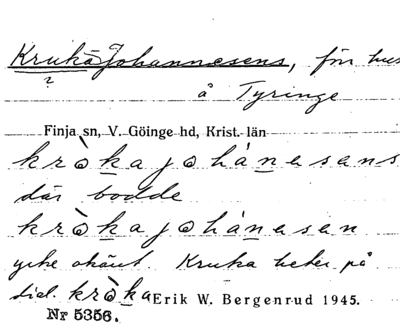 Krukä-Johannesens, för hus
?
å Tyringe
Finja sn, V. Göinge hd, Krist. län
kròkajohánesens
där bodde
kròkajohánesen
yrke okänt. Kruka heter på
dial. kròka Erik W. Bergenrud 1945.
Nr 5356.